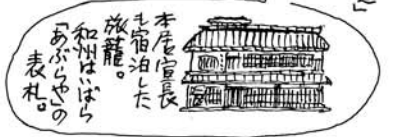 本居宣長
も宿泊した
旅籠。
和州はいばら
「あぶらや」の
表札。